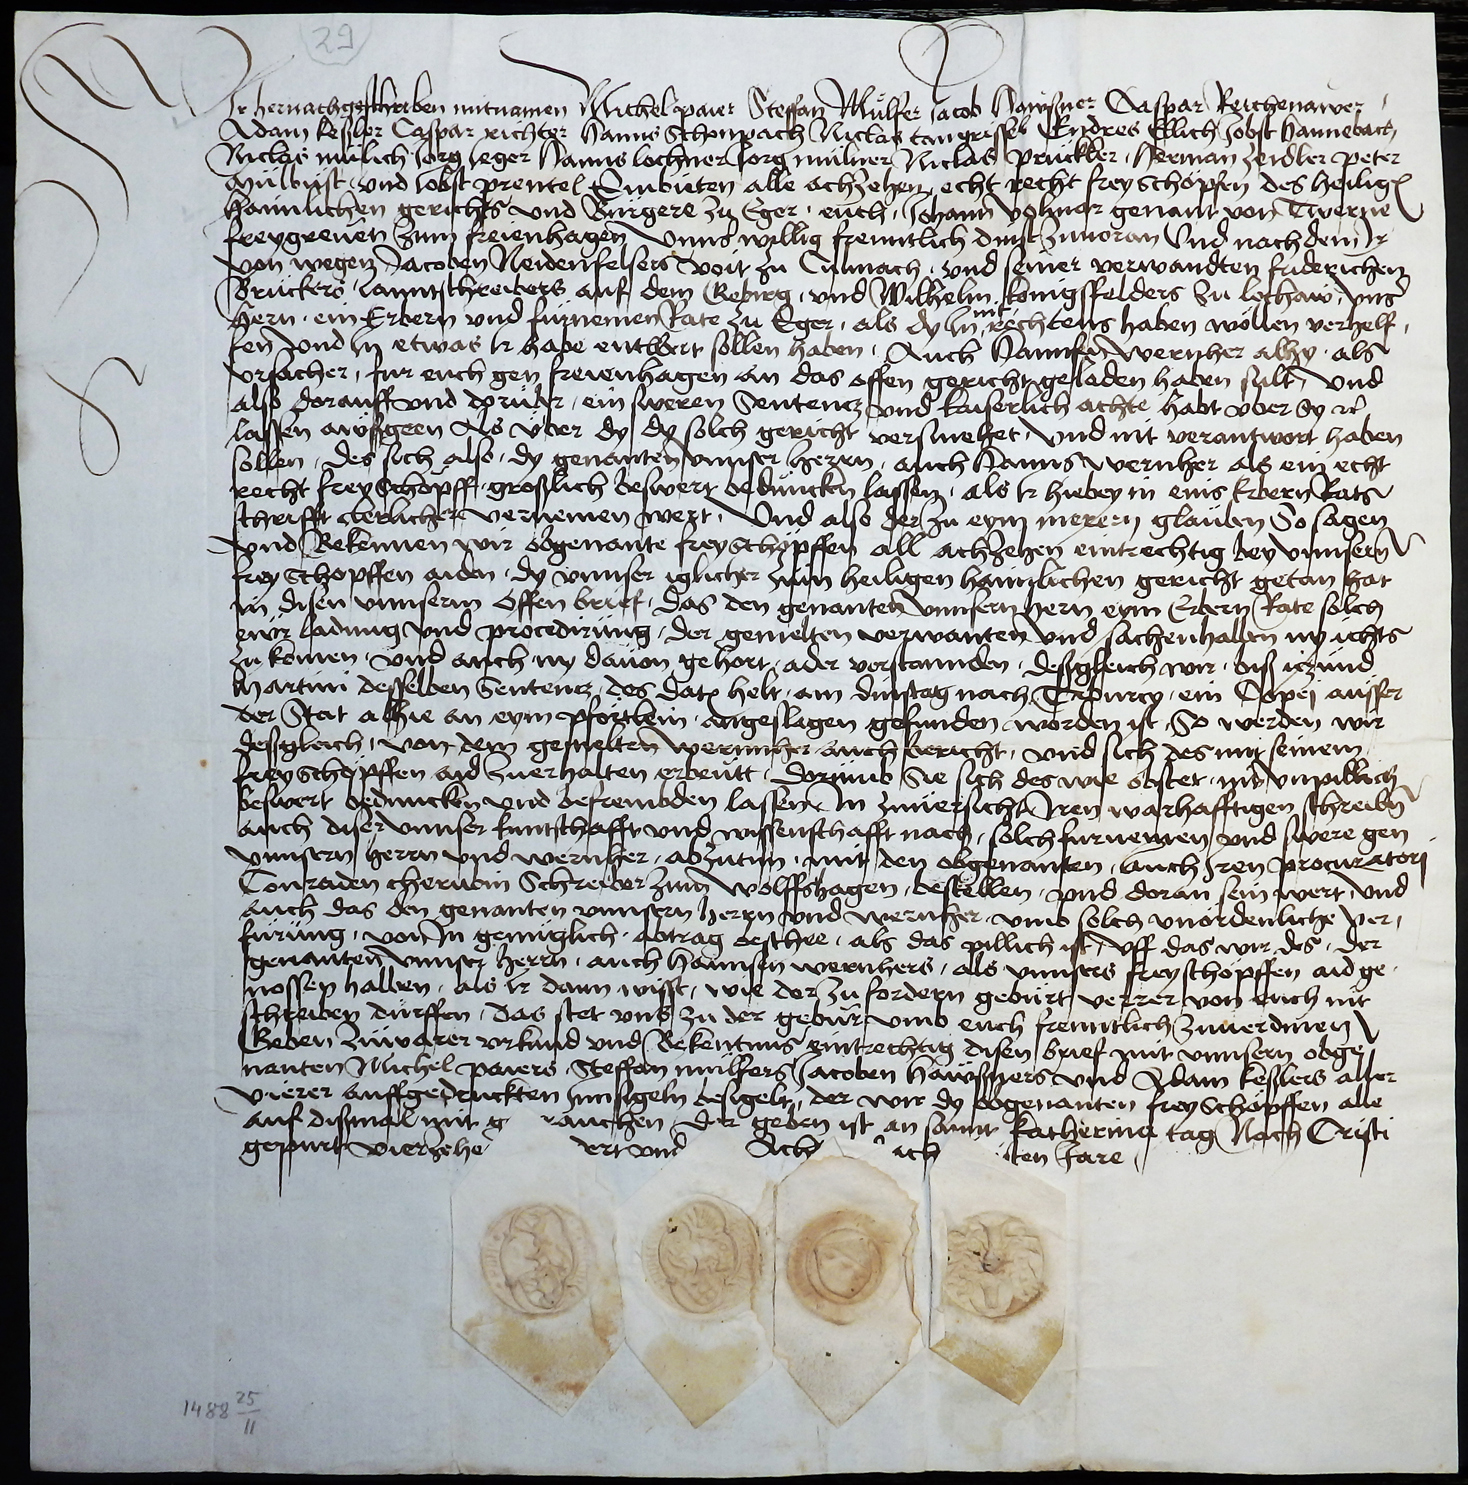 29
Wir hernachgeschriben mitnamen Michel paier Steffan Mülfer Jacob Hawßner Caspar Reichenawer
Adam keßler Caspar richter Hanns Schonpach Niclas tangrissel Endres Ellich Jobst Hannebach
Niclas mülich Jorg Jeger Hanns lochner Jorg mülner Niclas prückler Herman zeidler peter
und Jobst prentel Embieten alle achzehen echt recht frey schöpfen des heilig
haimlichen gerichts und Burgere zu Eger euch Johann volmar genant von Twerne
freygreven zum freienhagen Unns willig freuntlich dinst zuuoran Und nach dem Ir
von wegen Jacoben Neidenfelsers voit zu Culmach und seiner verwandten friderichen
Brückers lanntschreibers auf dem Gebirg und Wilhelm königsfelders zu lochaw uns
hern ein Erbern und fürnemen Rate zu Eger als dy In nit rechtens haben wöllen verhelf
fen Und In etwas Ir habe entwert sollen haben Auch Hannsen wernher alhy als
ursacher für euch gen freienhagen an das offen gericht geladen haben sült und
also dorauff und dorüber ein sweren Sentencz und kaiserlich achte habt uber Sy ec
lassen awßgeen Als uber dy dy solch gericht versmehet und nit verantwort haben
sollen des sich also dy genanten unnser herrn auch Hanns wernher als ein echt
recht frey schöpff großlich beswert beduncken lassen als Ir hiebey in eins Erbern Rats
schrifft clerlicher vernemen wert Und also der zu eym merern glauben So sagen
und Bekennen wir obgenante frey schöpffen all achzehen eintrechtig bey unnsern
frey schopffen aiden dy unnser iglicher zum heiligen haimlichen gericht getan hat
in disen unnserm offen brief das den genanten unnsern hern eym Erbern Rate solch
ewr ladung und procedirung der gemelten verwanten und sachenhalben ny ichts
zu komen und auch ny dauon gehort ader verstannden desgleich wir biß iczund
Martini desselben Sentencz des dat helt am dinstag nach ein Copej ausser
der Stat alhie an eym pförtlein angeslagen gefunden worden ist So werden wir
dessgleich von dem gemelten wernnher auch bericht und sich des mit seinem
frey schöpffen aid zuerhalten erbeutt Dorumb Sie sich des wie obstet nit unpillich
beswert beduncken und befrembden lassen In zuuersicht Iren warhafftigen schreibn
auch diser unnser kuntschafft und wissenschafft nach solch furnemen und swere gen
unnsern herrn und wernher abzutun mit den obgenanten auch Iren procuratorj
Conraden schreiber zum wolffshagen bestellen und doran sein wert und
auch das den genanten unnsern herrn und wernher umb solch unordenliche ver
fürung von In genuglich abtrag beschee als das pillich ist uff das wir des der
genanten unnser herrn auch Hannsen wernhers als unnsers frey schöpffen aid ge
nossen halben als Ir dann wisst wie der zu fordern gebürt verrer von euch nit
schreiben dürffen Das stet uns zu der gebür umb euch freuntlich zuuerdinen
Geben zu warer urkund und Bekentnus eintrechtig disen brief mit unnsern obge
nanten Michel paiers Steffan mülfers Jacoben Hawßners und Adam keßlers aller
vierer auffgedruckten Innsigeln besigelt der wir dy obgenanten frey schöpffen alle
auf dißmal mit g rauchen der geben ist an sannt katherina tag Nach Cristi
gepurt vierzehe ert und Acht ach ten Jare
1488 25/11